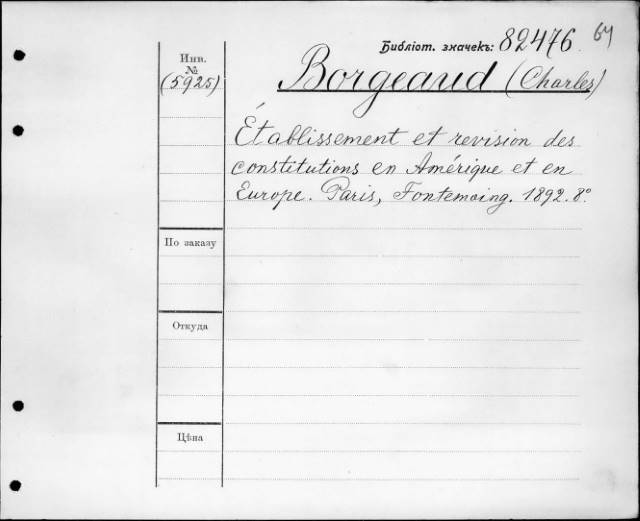 Библіот. значекъ: 82476 64
Инв.
№
(5925)
Borgeaud (Charles)
Établissement et revision des
constitutions en Amérique et en
Europe. Paris, Fontemoing. 1892. 8°
По заказу
Откуда
Цѣна